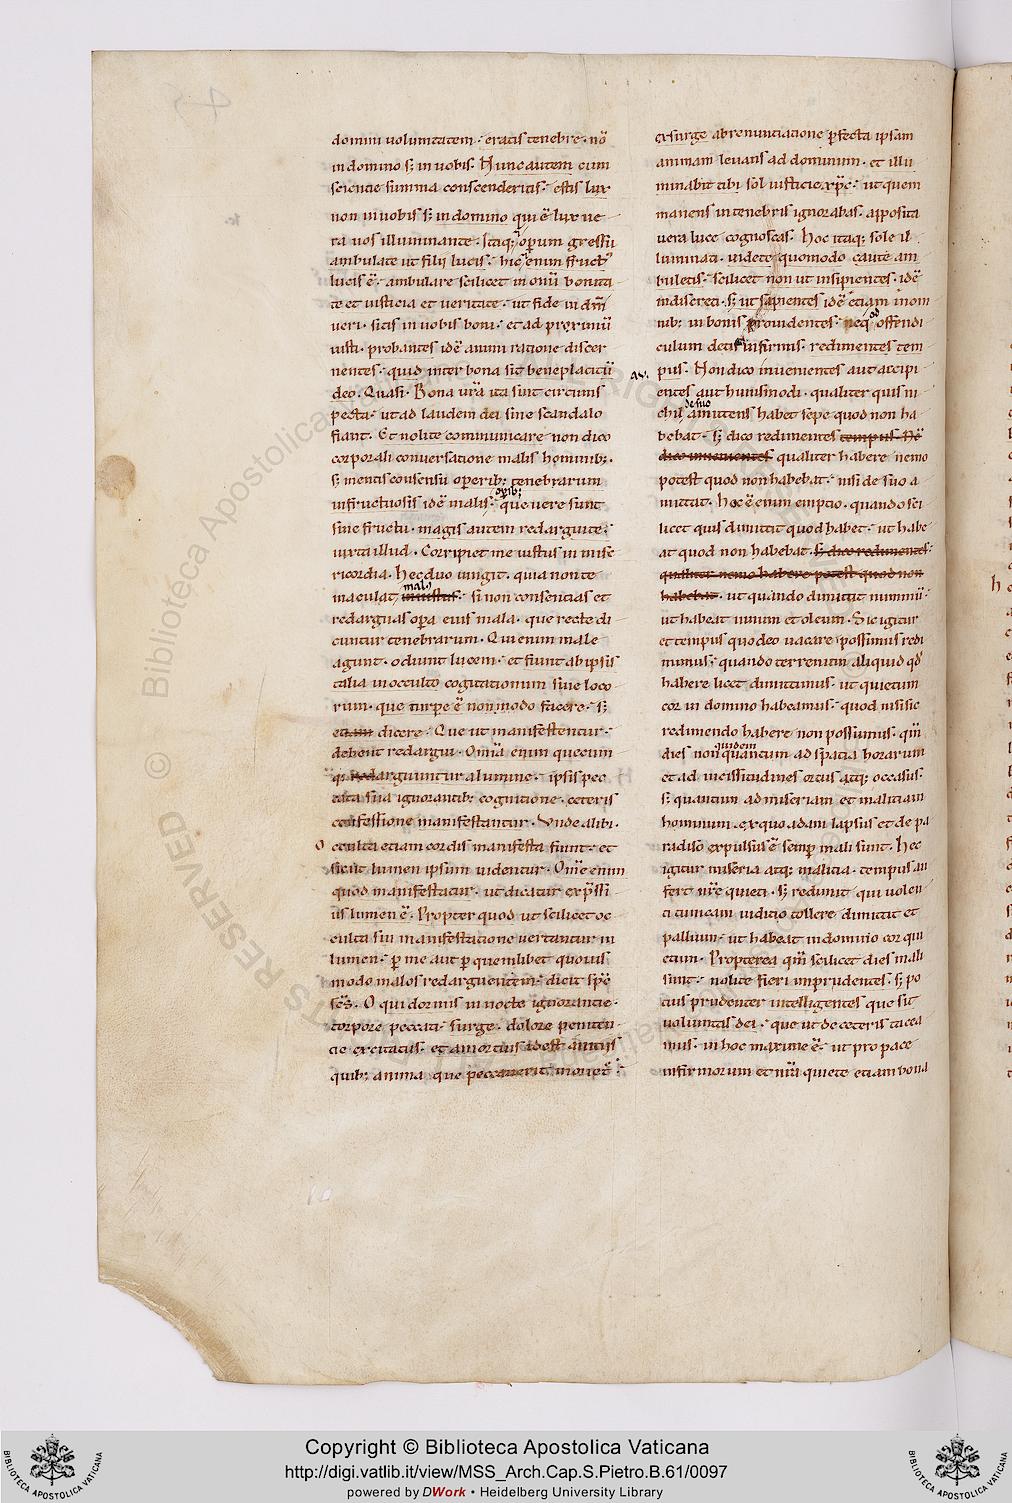 domini uoluntatem. eratis tenebre. nō
in domino s; in uobis. Hunc autem cum
sciencie summa conscenderitis. estis lux
non in uobis s; in domino qui ē lux ue
ra uos illuminante. Itaq; operum gressu
ambulate ut filii lucis. hic enim fruct᷒
lucis ē. ambulare scilicet in om̄i bonita
te et iusticia et ueritate. ut fide in dm̄
ueri. sitis in uobis boni. et ad proximū
iusti. probantes idē animi ratione discer
nentes. quid inter bona sit beneplacitū
deo. Quasi. Bona ur̄a ita sint circums
pecta. ut ad laudem dei sine scandalo
fiant. Et nolite communicare non dico
corporali conuersatione malis hominib;.
s; mentis consensu operib; tenebrarum
operib;
infructuosis idē malis. que uere sunt
sine fructu. magis autem redarguite.
iuxta illud. Corripiet me iustus in mise
ricordia. Hec duo iungit. quia non te
mal᷒
maculat iniustus. si non consentias et
redarguas opera eius mala. que recte di
cuntur tenebrarum. Qui enim male
agunt. odiunt lucem. et fiunt ab ipsis
talia in occulto cogitationum siue loco
rum. que turpe ē non modo facere. s;
etiam dicere. Que ut manifestentur.
debent redargui. Omīa enim quecum
q; redarguuntur a lumine. ipsis pec
cata sua ignorantib; cognitione. ceteris
confessione manifestantur. Vnde alibi.
O cculta etiam cordis manifesta fiunt. et
sicut lumen ipsum uidentur. Om̄e enim
quod manifestatur. ut dicatur exp̄ssi
us lumen ē. Propter quod ut scilicet oc
culta sui manifestatione uertantur in
lumen. p me aut p quemlibet quouis
modo malos redarguentem. dicit sp̄c
sc̄s. O qui dormis in nocte ignorantie.
torpore peccati. surge. dolore peniten
cie excitatus. et a mortuis id est a uitiis
quib; anima que peccauerit moriet᷒.
exsurge abrenuntiatione perfecta ipsam
animam leuans ad dominum. et illu
minabit tibi sol iusticie xp̄c. ut quem
manens in tenebris ignorabas. apposita
uera luce cognoscas. Hoc itaq; sole il
luminati. uidete quomodo caute am
buletis. scilicet non ut insipientes. idē
indiscreti. s; ut sapientes idē etiam in om
nib; in bonis prouidentes. neq; offendi
ad
culum detis infirmis. redimentes tem
pus. Non dico inuenientes aut accipi
entes aut huiusmodi. qualiter quis ni
de suo
chil amittens habet sepe quod non ha
bebat. s; dico redimentes tempus. Nō
dico inuenientes qualiter habere nemo
potest quod non habebat. nisi de suo a
mittat. Hoc ē enim emptio. quando sci
licet quis dimittit quod habet. ut habe
at quod non habebat. s; dico redimentes
qualiter nemo habere potest quod non
habebat. ut quando dimittit nummū.
ut habeat uinum et oleum. Sic igitur
et tempus quo deo uacare possimus redi
mimus. quando terrenum aliquid qd̄
habere licet dimittimus. ut quietum
cor in domino habeamus. quod nisi sic
redimendo habere non possumus. qm̄
quidem
dies non quantum ad spatia horarum
et ad uicissitudines ortus atq; occasus.
s; quantum ad miseriam et malitiam
hominum. ex quo adam lapsus et de pa
radiso expulsus ē semper mali sunt. Hec
igitur miseria atq; malicia. tempus au
fert nr̄e quieti. s; redimit qui uolen
ti tunicam iuditio tollere dimittit et
pallium. ut habeat in domino cor qui
etum. Propterea qm̄ scilicet dies mali
sunt. nolite fieri imprudentes. s; po
tius prudenter intelligentes que sit
uoluntas dei. que ut de ceteris tacea
mus. in hoc maxime ē. ut pro pace
infirmorum et nr̄i quiete etiam bona
© Biblioteca Apostolica Vaticana
ALL RIGHTS RESERVED
Copyright © Biblioteca Apostolica Vaticana
http://digi.vatlib.it/view/MSS_Arch.Cap.S.Pietro.B.61/0097
powered by DWork • Heidelberg University Library
BIBLIOTECA APOSTOLICA VATICANA
BIBLIOTECA APOSTOLICA VATICANA